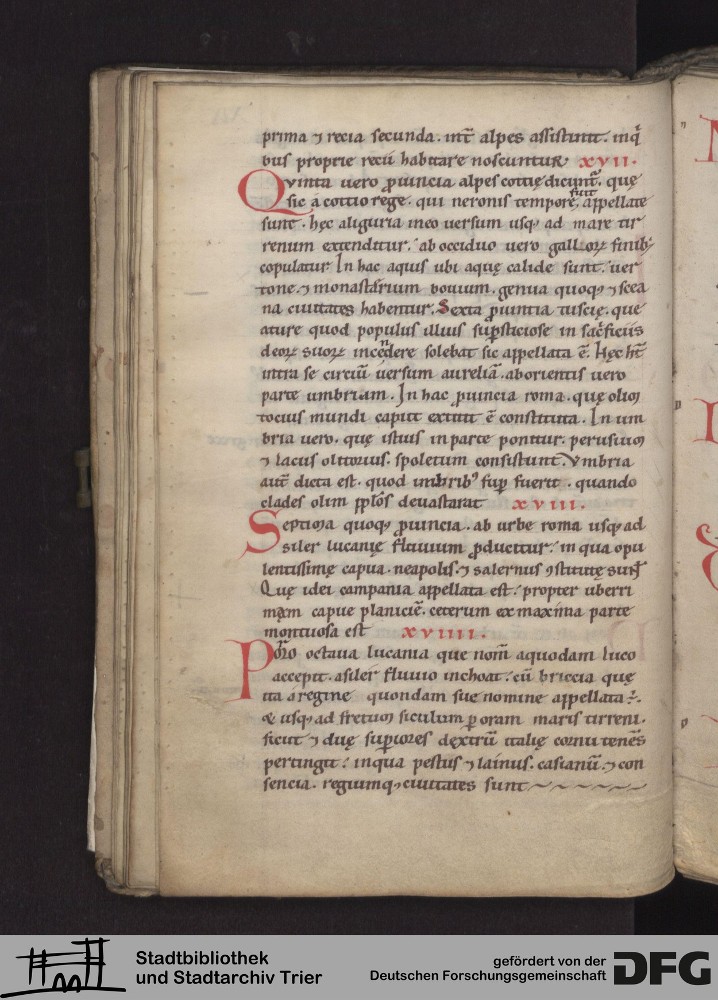 prima ⁊ recia secunda. int̄ alpes assistunt. inq̇
bus proprie recii habitare noscuntur xvii.
Qvinta uero ꝓuincia alpes cottię dicunt᷑. quę
sic a cottio rege. qui neronis tempore fuit, appellatę
sunt. hęc a liguria in eo uersum usq; ad mare tir
renum extenditur. ab occiduo uero galloꝝ finib;
copulatur In hac aquis ubi aquę calide sunt. uer
tone. ⁊ monasterium bouium. genua quoq; ⁊ scea
na ciuitates habentur. Sexta ꝓuintia tuscię. que
a ture quod populus illius suꝑsticiose in sac̄ficiis
deoꝝ suoꝝ incendere solebat sic appellata ē. Hęc h̄t
intra se circiū uersum aureliā. ab orientis uero
parte umbriam. In hac ꝓuincia roma. quę olim
tocius mundi caput extitit ē constituta. In um
bria uero. quę istius in parte ponitur. perusium
⁊ lacus olitorius. spoletum consistunt. Vmbria
aut̄ dicta est. quod imbrib; suꝑ fuerit. quando
clades olim pplos deuastarat xviii.
Septima quoq; ꝓuincia. ab urbe roma usq; ad
siler lucanię fluuium ꝓducitur. in qua opu
lentissimę capua. neapolis. ⁊ salernus ꝯstitutę sunt
Quę idei campania appellata est. propter uberri
mam capue planiciē. ceterum ex maxima parte
montuosa est xviiii.
Porro octaua lucania que nom̄ a quodam luco
accepit. a siler fluuio inchoat. cū briccia quę
ita a regine quondam sue nomine appellata ÷.
& usq; ad fretum siculum ꝑ oram maris tirreni.
sicut ⁊ duę suꝑiores dextrū italię cornu tenēs
pertingit. in qua pestus ⁊ lainus. casianū. ⁊ con
sencia. regiumq; ciuitates sunt
Stadtbibliothek
und Stadtarchiv Trier
gefördert von der
Deutschen Forschungsgemeinschaft
DFG